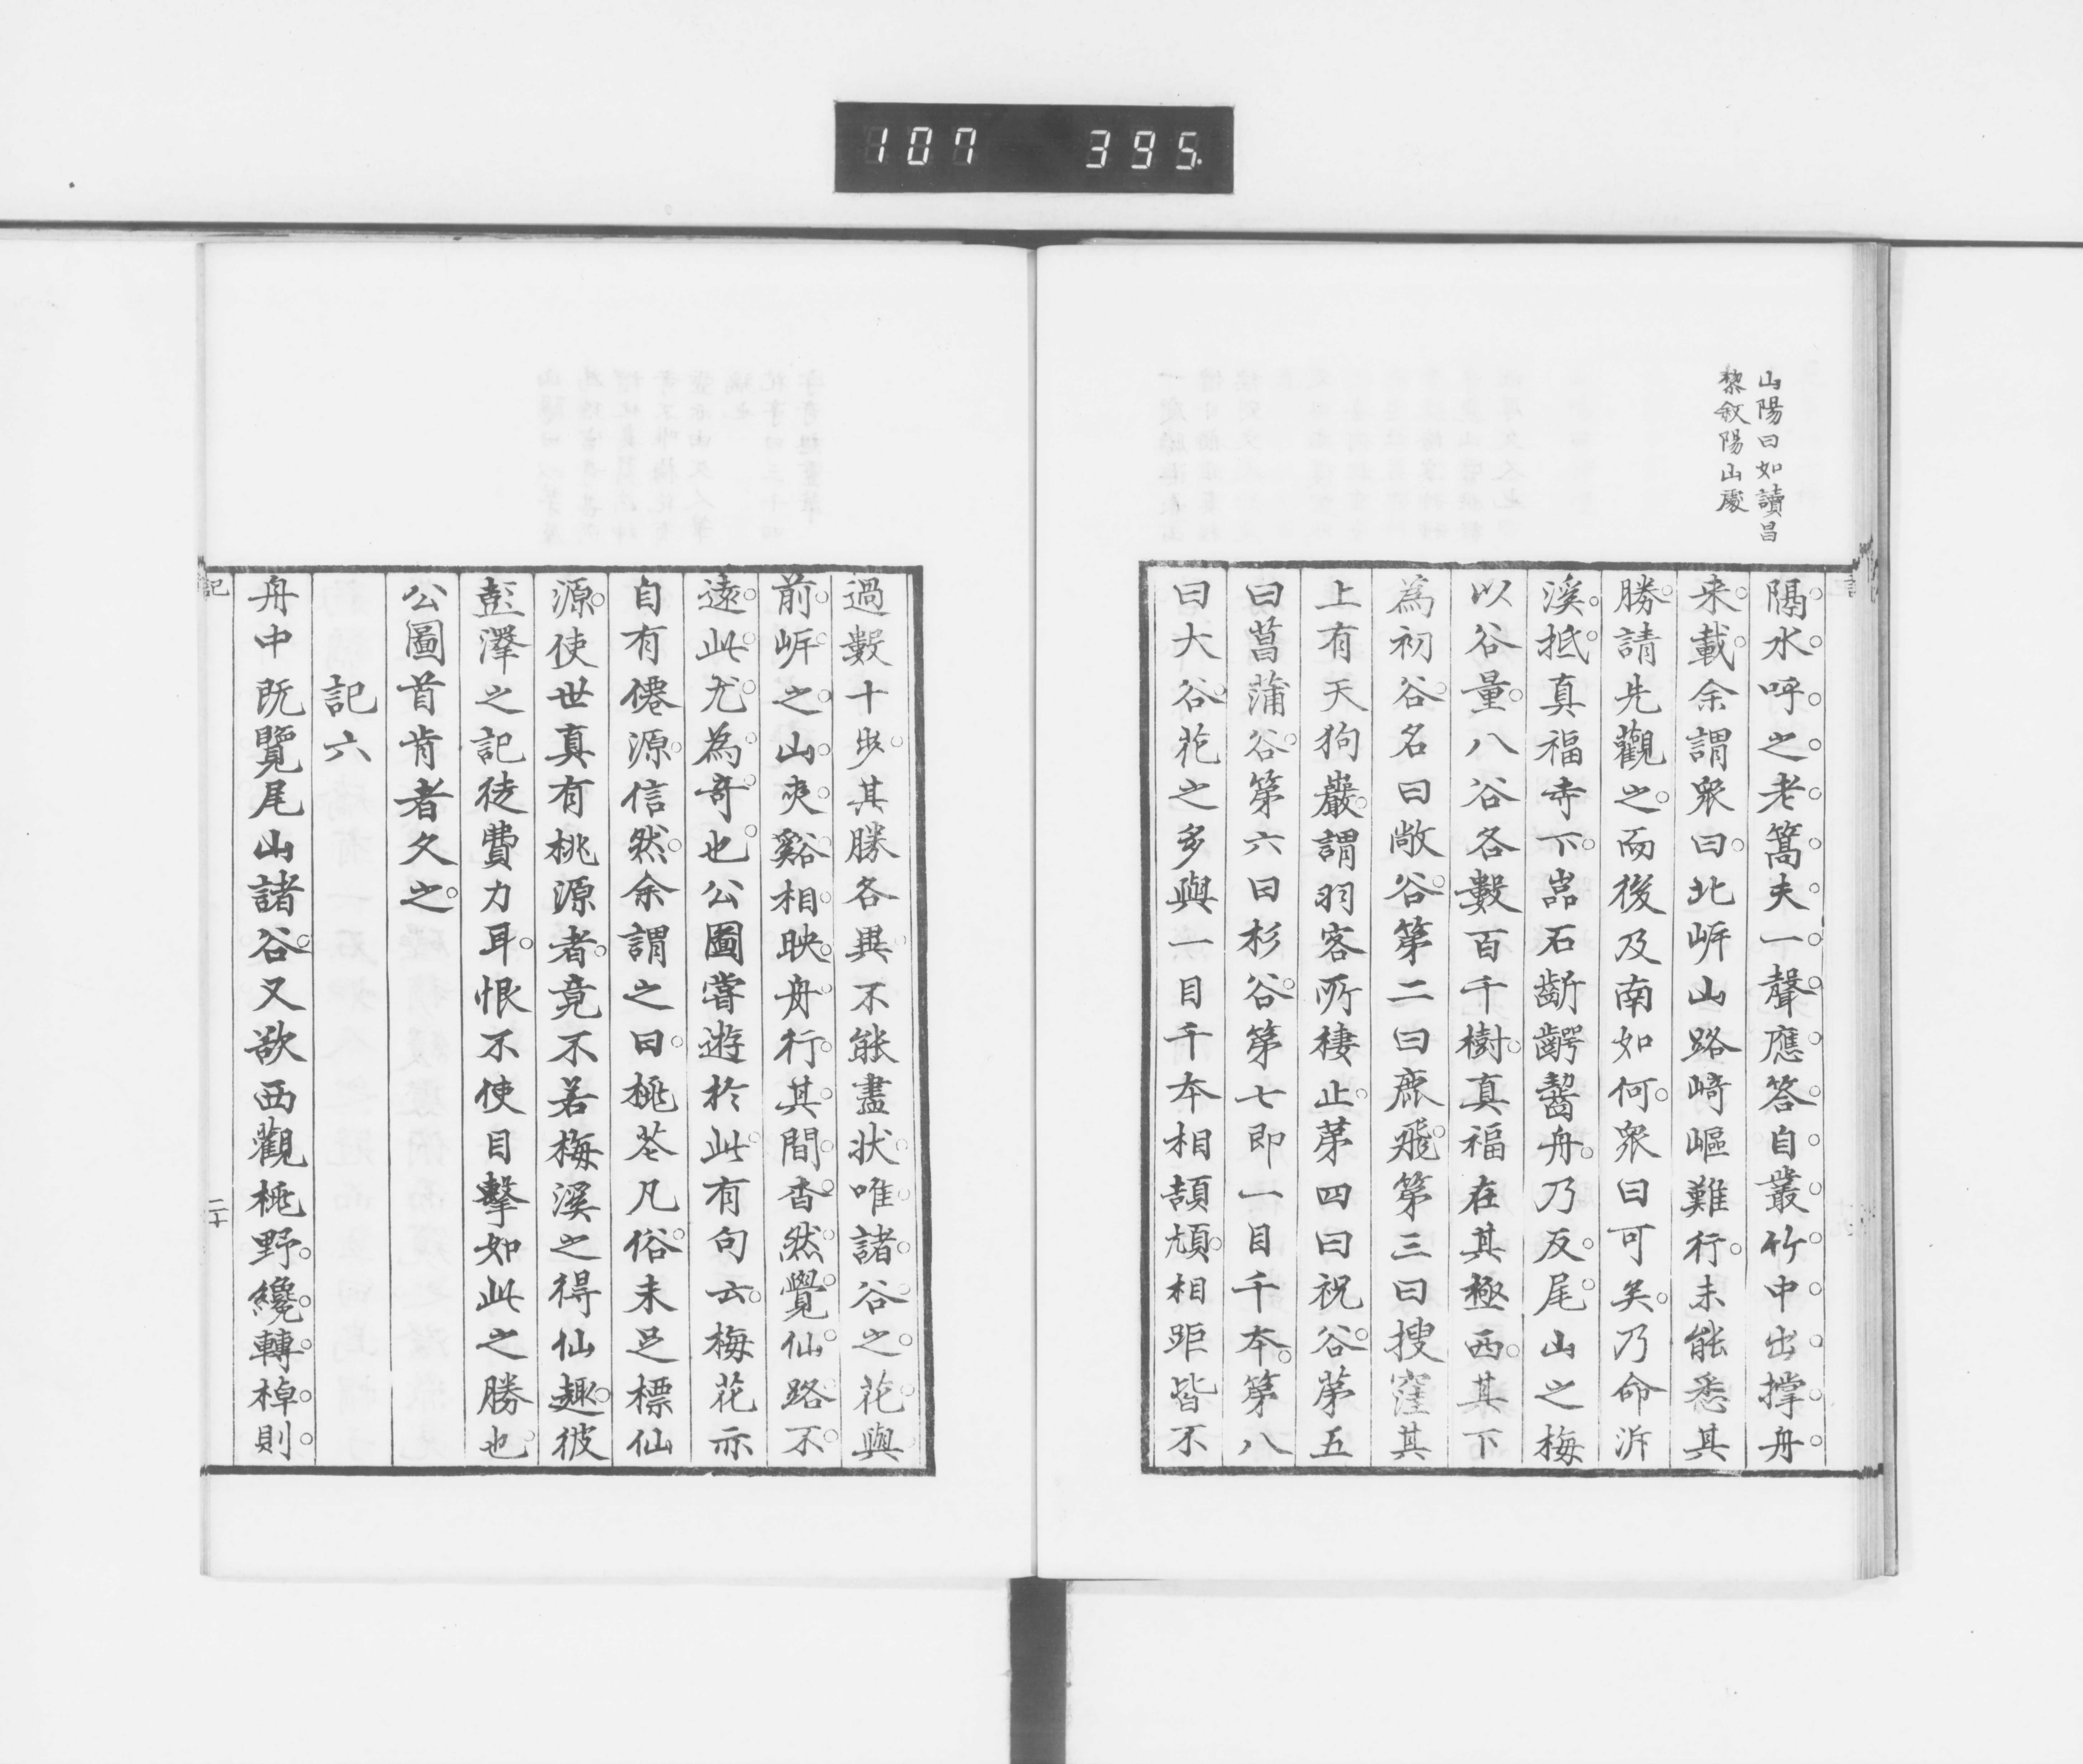 107 395
山陽曰如讀昌
黎敘陽山處
隔水呼之老篙夫一聲應答自叢竹中出撑舟
来載余謂衆曰北岸山路﨑嶇難行未能悉其
勝請先觀之而後及南如何衆曰可矣乃命泝
溪抵真福寺下嵓石齗齶齧舟乃反尾山之梅
以谷量八谷各數百千樹真福在其極西其下
為初谷名曰敞谷第二曰鹿飛第三曰搜窪其
上有天狗巖謂羽客所棲止第四曰祝谷第五
曰菖蒲谷第六曰杉谷第七即一目千本第八
曰大谷花之多與一目千本相頡頏相距皆不
過數十步其勝各異不能盡状唯諸谷之花與
前岸之山夾谿相映舟行其間杳然覺仙路不
遠此尤為奇也公圖嘗遊於此有句云梅花亦
自有僊源信然余謂之曰桃花凡俗未足標仙
源使世真有桃源者竟不若梅溪之得仙趣彼
彭澤之記徒費力耳恨不使目擊如此之勝也
公圖首肯者久之
記六
舟中既覽尾山諸谷又欲西觀桃野纔轉棹則
記
二十